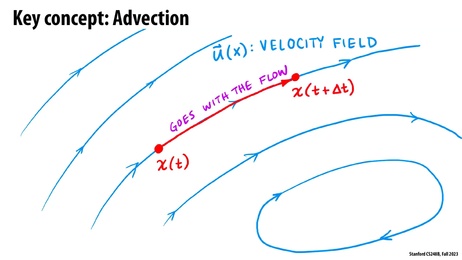 Key concept: Advection
u⃗(x): VELOCITY FIELD
GOES WITH THE FLOW
x(t+Δt)
x(t)
Stanford CS248B, Fall 2023